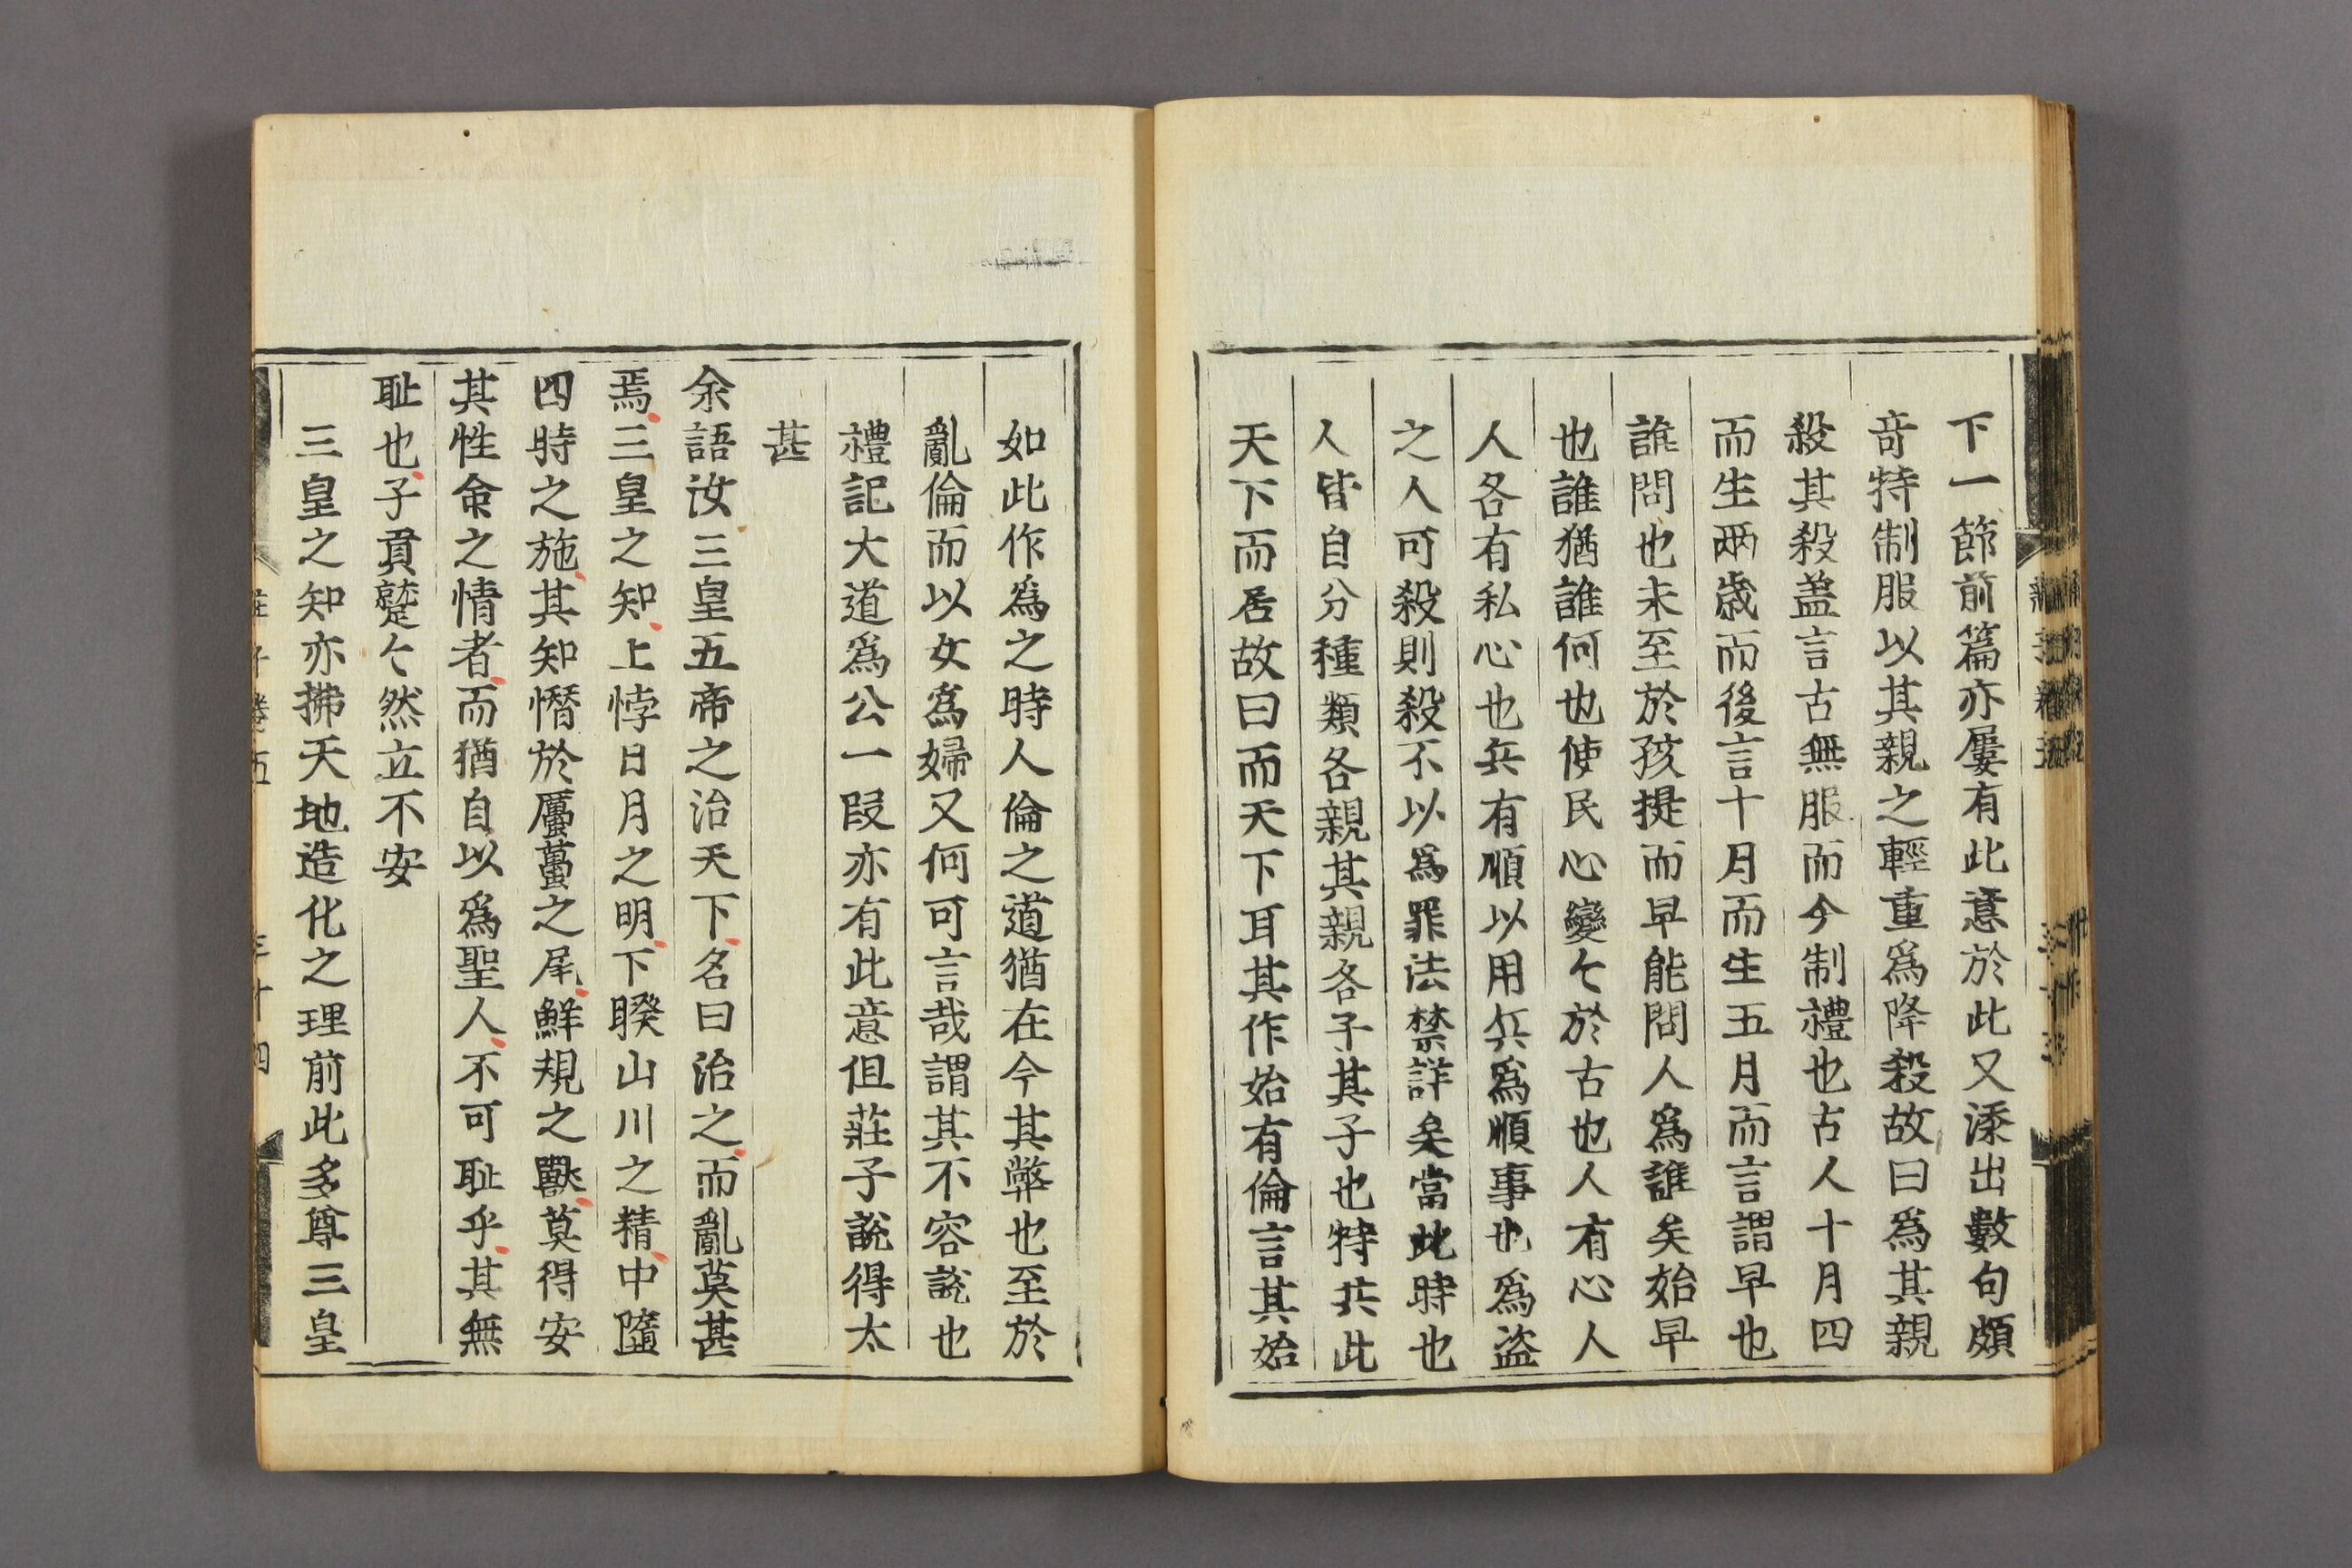 下一節前篇亦屢有此意於此又添出數句頗
竒特制服以其親之輕重爲降殺故曰爲其親
殺其殺盖言古無服而今制禮也古人十月四
而生兩歲而後言十月而生五月而言謂早也
誰問也未至於孩提而早能問人爲誰矣始早
也誰猶誰何也使民心變〻於古也人有心人
人各有私心也兵有順以用兵爲順事也爲盜
之人可殺則殺不以爲罪法禁詳矣當此時也
人皆自分種類各親其親各子其子也特共此
天下而居故曰而天下耳其作始有倫言其始
如此作爲之時人倫之道猶在今其弊也至於
亂倫而以女爲婦又何可言哉謂其不容説也
禮記大道爲公一叚亦有此意但莊子説得太
甚
余語汝三皇五帝之治天下名曰治之而亂莫甚
焉三皇之知上悖日月之明下睽山川之精中隳
四時之施其知憯於蠣蠆之尾鮮規之獸莫得安
其性命之情者而猶自以爲聖人不可耻乎其無
耻也子貢蹵〻然立不安
三皇之知亦拂天地造化之理前此多尊三皇
莊子卷五
三十四